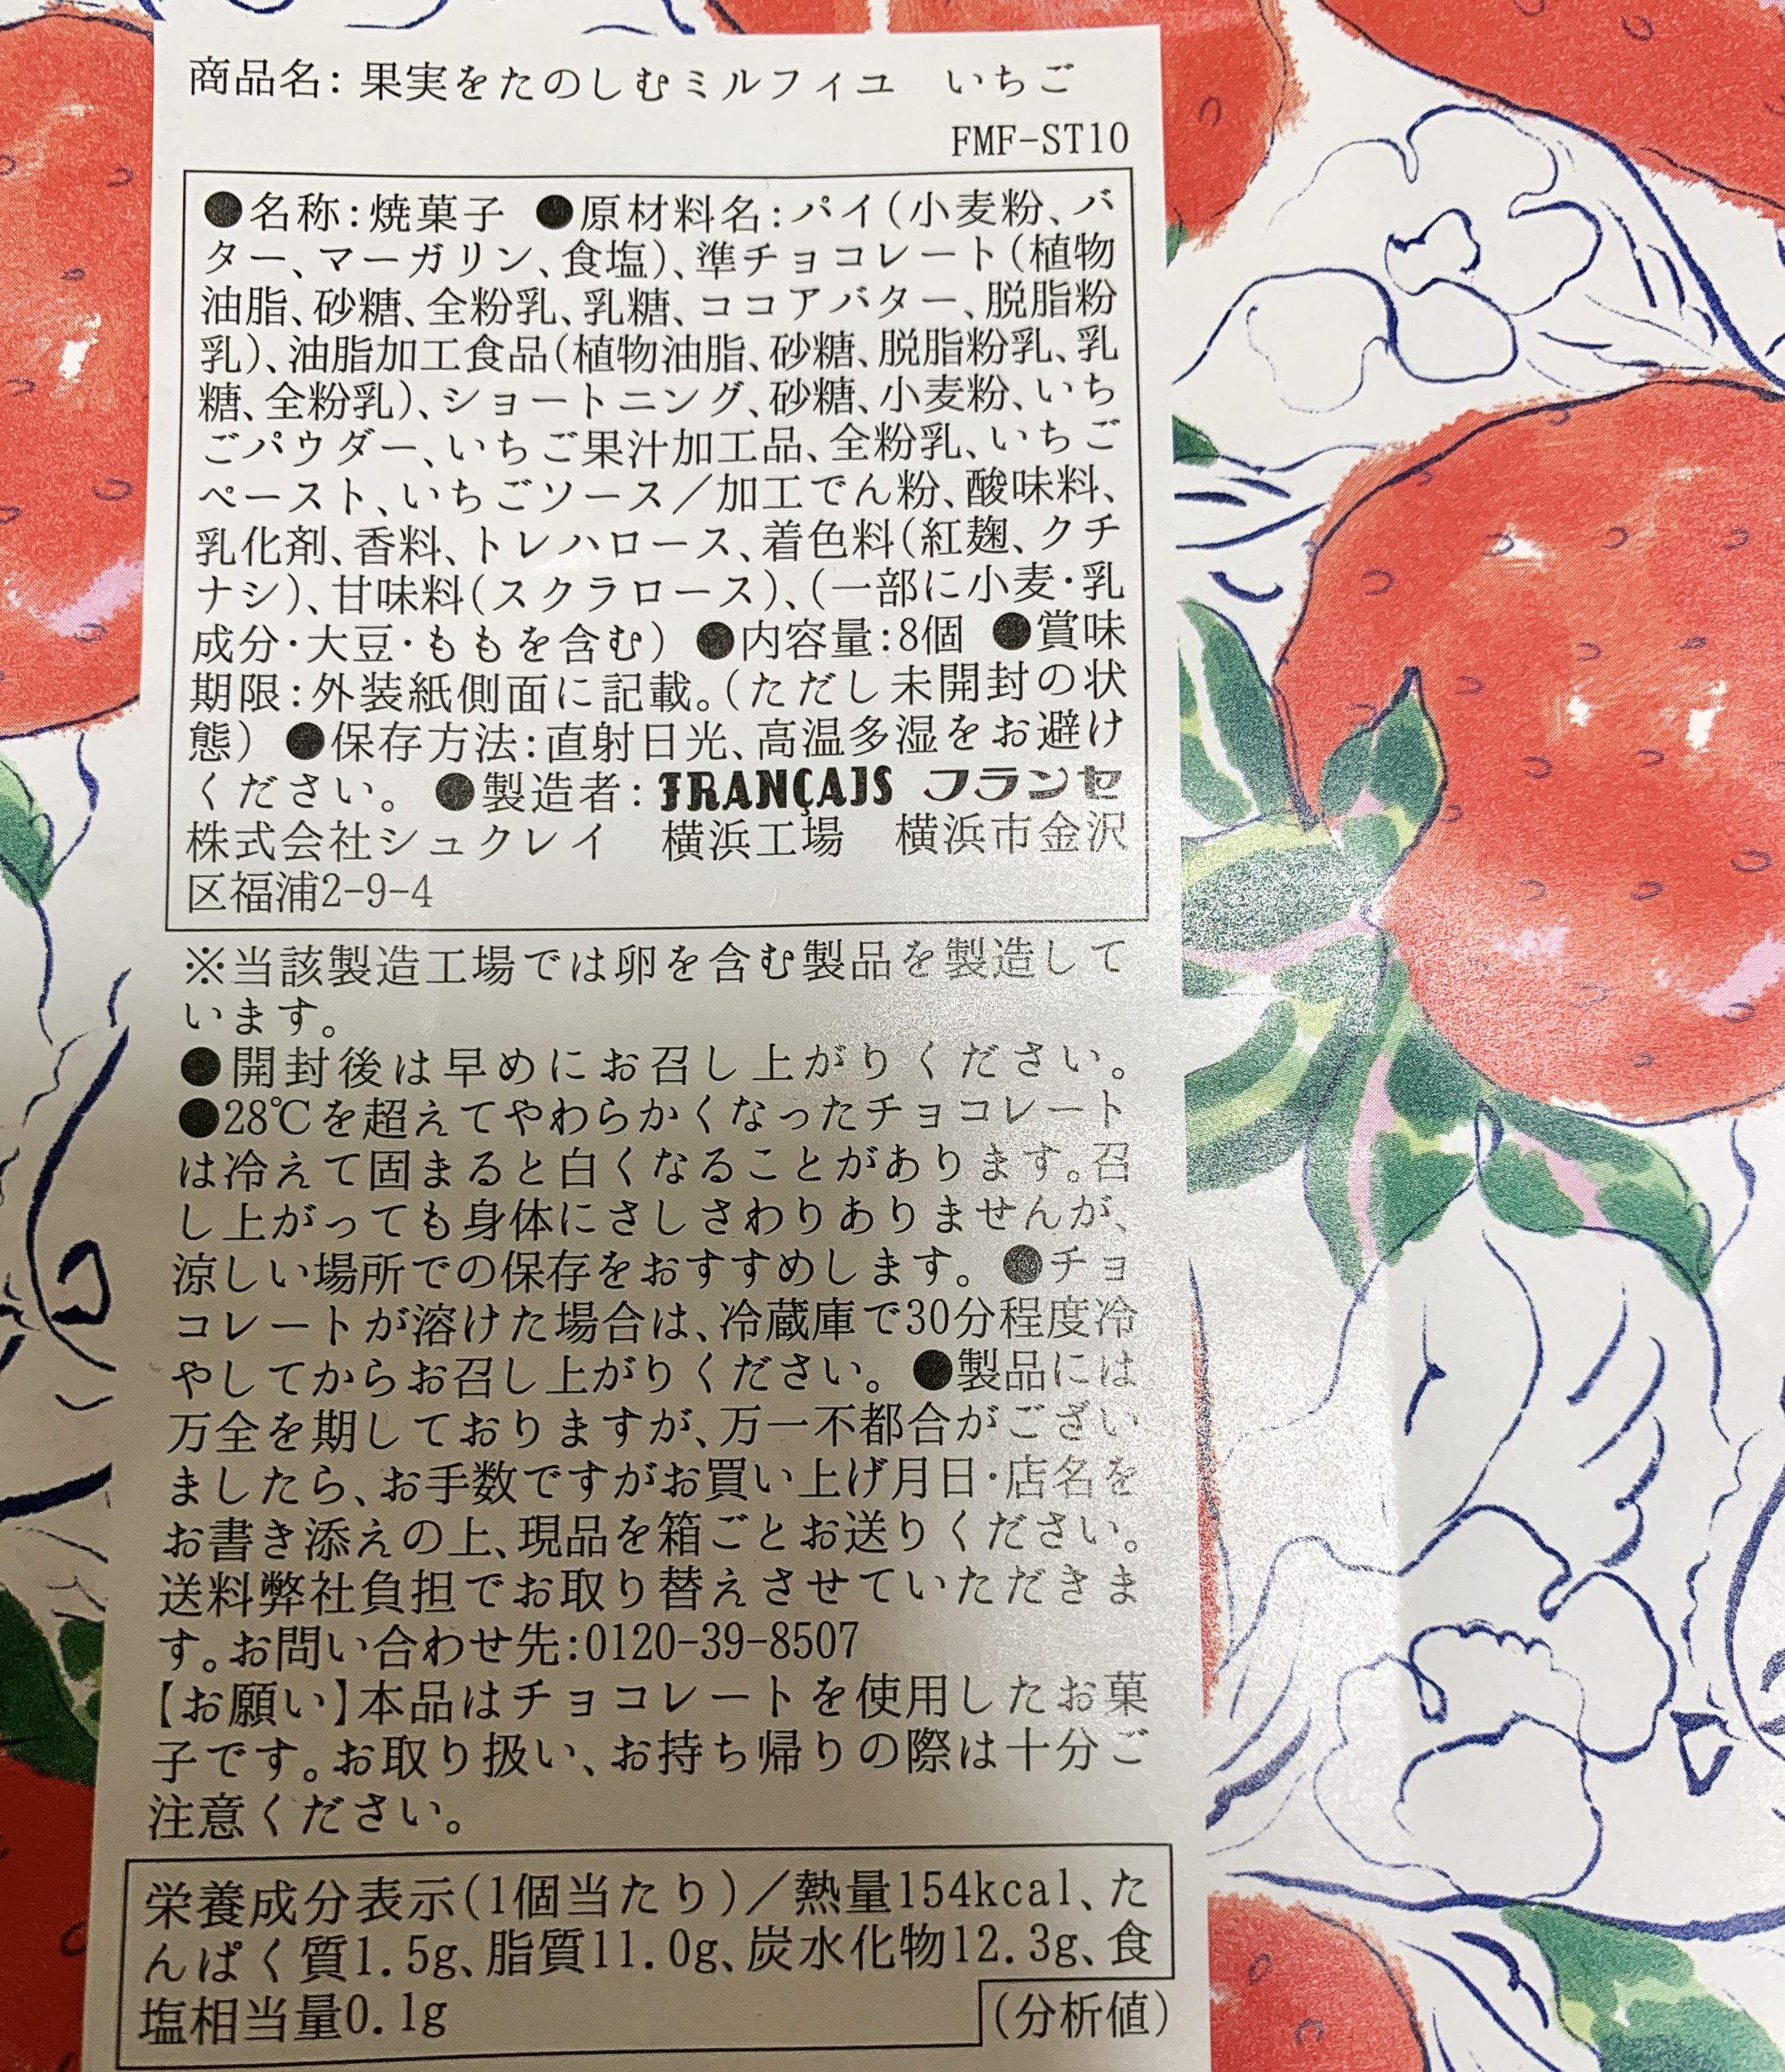 商品名：果実をたのしむミルフィユ　いちご
FMF-ST10
●名称：焼菓子 ●原材料名：パイ（小麦粉、バ
ター、マーガリン、食塩）、準チョコレート（植物
油脂、砂糖、全粉乳、乳糖、ココアバター、脱脂粉
乳）、油脂加工食品（植物油脂、砂糖、脱脂粉乳、乳
糖、全粉乳）、ショートニング、砂糖、小麦粉、いち
ごパウダー、いちご果汁加工品、全粉乳、いちご
ペースト、いちごソース／加工でん粉、酸味料、
乳化剤、香料、トレハロース、着色料（紅麹、クチ
ナシ）、甘味料（スクラロース）、（一部に小麦・乳
成分・大豆・ももを含む）●内容量：8個 ●賞味
期限：外装紙側面に記載。（ただし未開封の状
態）●保存方法：直射日光、高温多湿をお避け
ください。●製造者：FRANÇAIS フランセ
株式会社シュクレイ　横浜工場　横浜市金沢
区福浦2-9-4
※当該製造工場では卵を含む製品を製造して
います。
●開封後は早めにお召し上がりください。
●28℃を超えてやわらかくなったチョコレート
は冷えて固まると白くなることがあります。召
し上がっても身体にさしさわりありませんが、
涼しい場所での保存をおすすめします。●チョ
コレートが溶けた場合は、冷蔵庫で30分程度冷
やしてからお召し上がりください。●製品には
万全を期しておりますが、万一不都合がござい
ましたら、お手数ですがお買い上げ月日・店名を
お書き添えの上、現品を箱ごとお送りください。
送料弊社負担でお取り替えさせていただきま
す。お問い合わせ先：0120-39-8507
【お願い】本品はチョコレートを使用したお菓
子です。お取り扱い、お持ち帰りの際は十分ご
注意ください。
栄養成分表示（1個当たり）／熱量154kcal、た
んぱく質1.5g、脂質11.0g、炭水化物12.3g、食
塩相当量0.1g
（分析値）